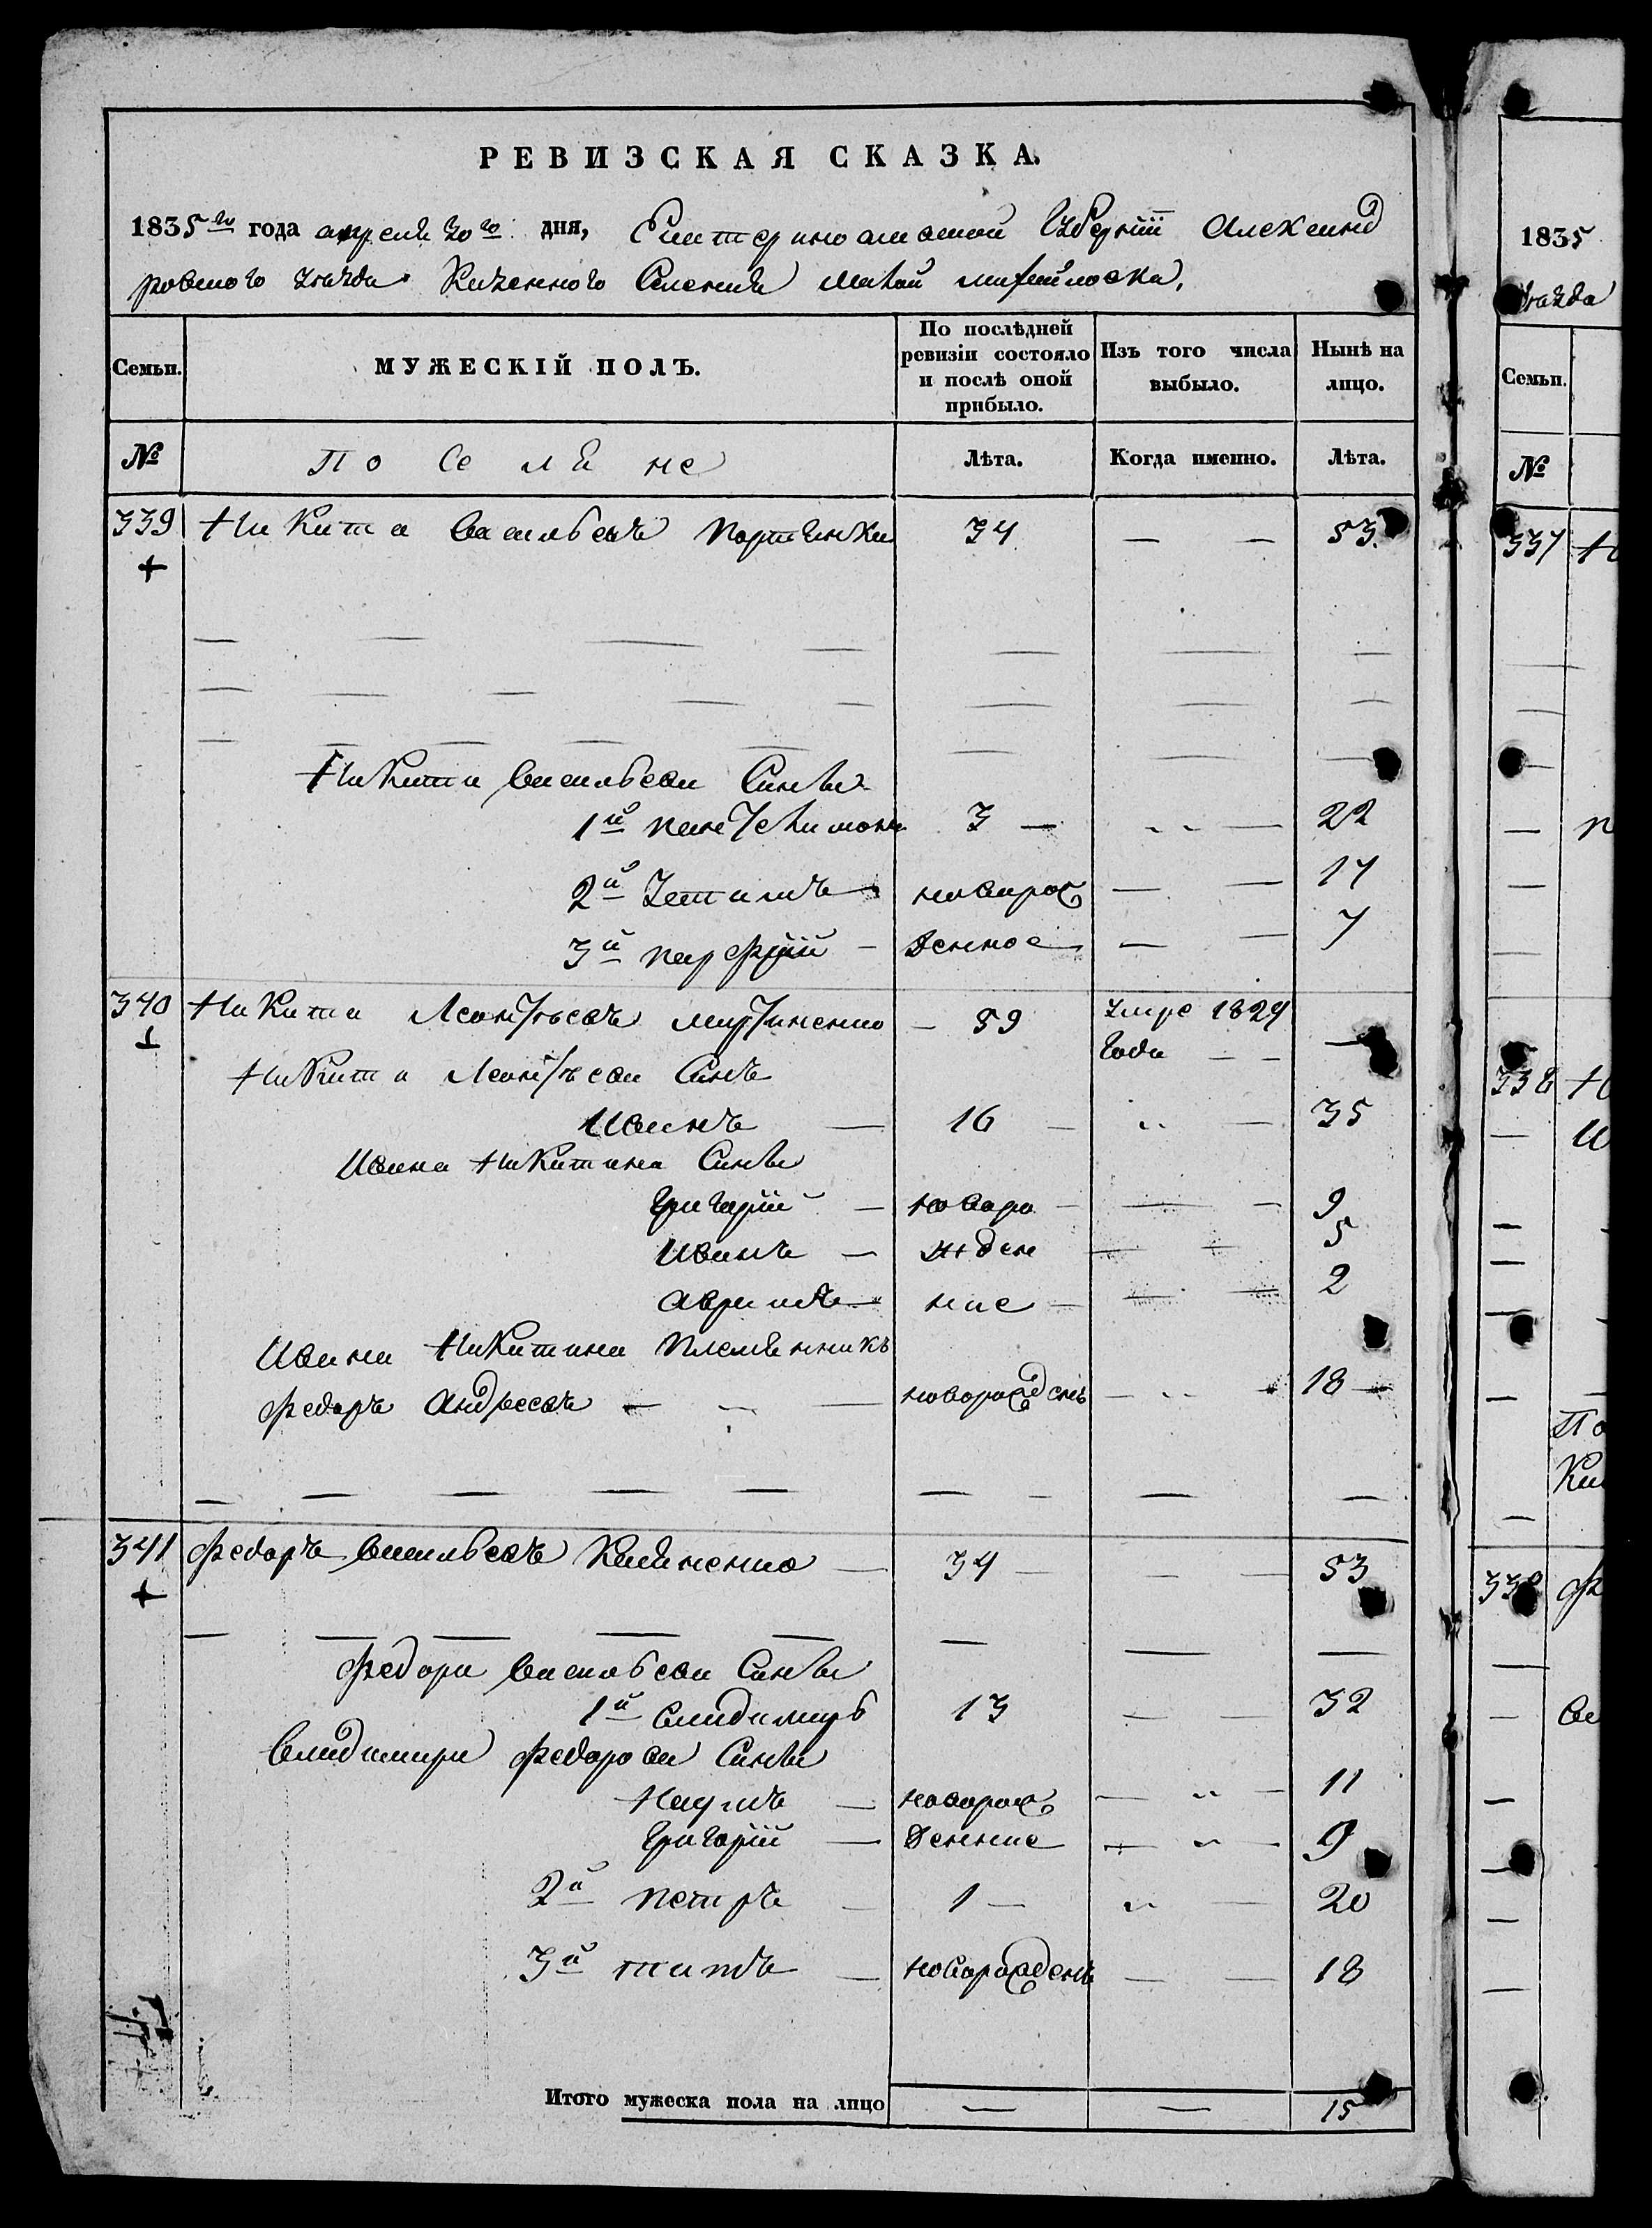 РЕВИЗСКАЯ СКАЗКА.
1835го года апреля 30го дня, Екатеринославской Губернiи Александ
ровского уезда Казенного Селения Малой михайловки.
Семьи.
МУЖЕСКІЙ ПОЛЪ.
По послѣдней ревизіи состояло и послѣ оной прибыло.
Изъ того числа выбыло.
Нынѣ на лицо.
№ Поселяне Лѣта. Когда именно. Лѣта.
339 Никита Васильевъ 34 — — 53
Никиты Васильева Сыны
1й пантелимонъ 3 — 22
2й новорож — — 17
3й парфiй — денное — — 7
340 Никита Леонтьевъ мартиненко — 59 Умре 1829
года — — —
Никиты Леонтьева Сынъ
Иванъ — 16 — 35
Ивана Никитина Сыны
Григорiй — новоро — 9
Иванъ — жден 5
Аврамъ — ные — 2
Ивана Никитина племянникъ
Федоръ Андреевъ — новорожденъ — 18
341 Федоръ Васильевъ — 34 — — — 53
Федора Васильева Сыны
1й Владимиръ 13 — — 32
Владимира Федорова Сыны
Наумъ — новорож — 11
Григорiй — денные — 9
2й петръ — 1 — 20
3й титъ — новорожденъ — — 18
Итого мужеска пола на лицо — — 15
1835
уезда
Семьи.
№
337
338
339